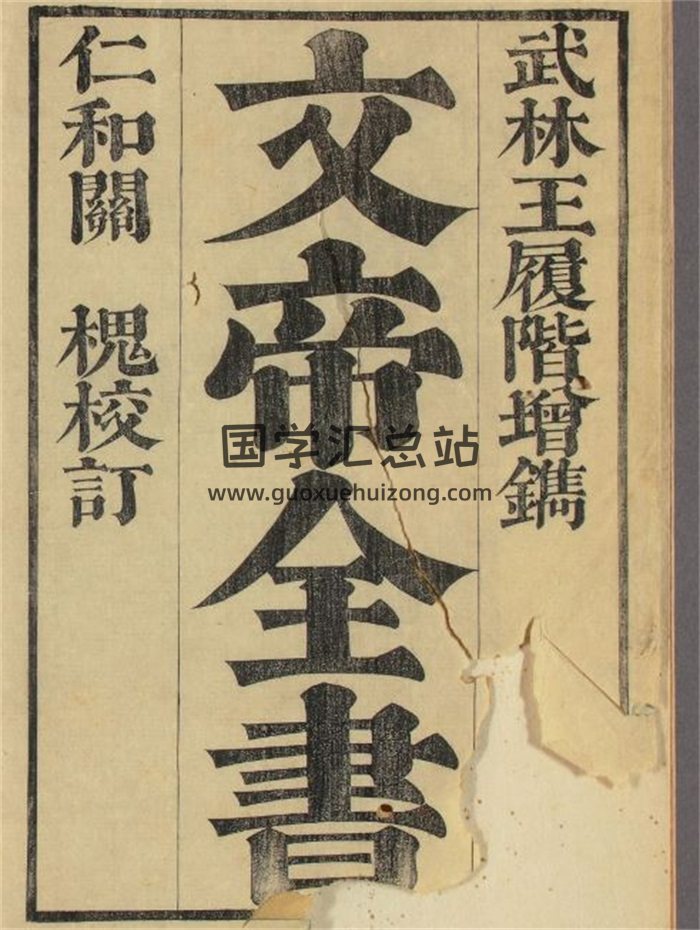 武林王履階增鐫
文帝全書
仁和關　槐校訂
国学汇总站
www.guoxuehuizong.com